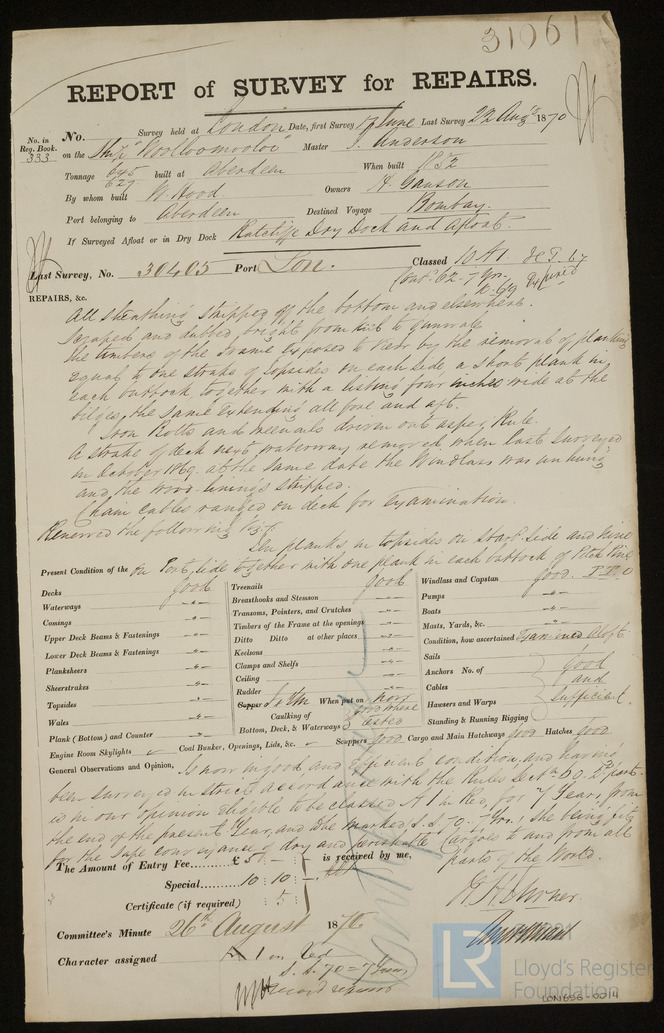 31061
REPORT of SURVEY for REPAIRS.
No. in Reg. Book. 333
No. Survey held at London Date, first Survey 17 June Last Survey 22 Augst 1870
on the Ship "Woolloomooloo" Master J. Anderson
Tonnage 645 627 built at Aberdeen When built 1852
By whom built W. Hood Owners A. Gawson
Port belonging to Aberdeen Destined Voyage Bombay.
If Surveyed Afloat or in Dry Dock Ratcliffe Dry Dock and afloat.
Last Survey, No. 30405 Port Lon. Classed 10 A1
Cont. 62 - 7 Yrs.
REPAIRS, &c.
All sheathing stripped off the bottom and elsewhere
scraped and dubbed bright from keel to gunwale
the timbers of the frame exposed to view by the removal of planking
equal to one strake of topsides on each side, a short plank in
each buttock together with a listing four inches wide at the
bilges, the same extending all fore and aft.
Iron Bolts and treenails driven out as per Rule.
A strake of deck next waterway removed when last surveyed
in October 1869. at the same date the Windlass was unhung
and the wood linings stripped.
Chain Cables ranged on deck for examination.
Renewed the following viz:
Ten planks in topsides on Starbd side and nine
on Port side together with one plank in each buttock of Pitch Pine
Present Condition of the
Decks good
Waterways
Comings
Upper Deck Beams & Fastenings
Lower Deck Beams & Fastenings
Planksheers
Sheerstrakes
Topsides
Wales
Plank (Bottom) and Counter
Engine Room Skylights
Treenails good
Breasthooks and Stemson
Transoms, Pointers, and Crutches
Timbers of the Frame at the openings
Ditto Ditto at other places
Keelsons
Clamps and Shelfs
Ceiling
Rudder
Copper When put on now
Caulking of Bottom, Deck, & Waterways
Coal Bunker, Openings, Lids, &c. Scuppers good Cargo and Main Hatchways good Hatches good
Windlass and Capstan good.
Pumps
Boats
Masts, Yards, &c.
Condition, how ascertained Examined Aloft
Sails
Anchors No. of good
Cables and
Hawsers and Warps sufficient.
Standing & Running Rigging
General Observations and Opinion, Is now in good, and efficient condition, and having
been surveyed in strict accordance with the Rules Sectn 60. 2d part.
is in our opinion eligible to be classed A 1 in Red, for 7 Years, from
the end of the present Year, and be marked S.S. 70. 7 Yrs. She being fit
for the safe conveyance of dry and perishable Cargoes to and from all
parts of the World.
The Amount of Entry Fee......£ 5 : - : is received by me,
Special......10 : 10 : -
Certificate (if required) : 5 :
Committee's Minute 26th August 1870
Character assigned A 1 in red
S. S. 70 = 7 Years
record repairs
LR
Lloyd's Register
Foundation
LON656-0214